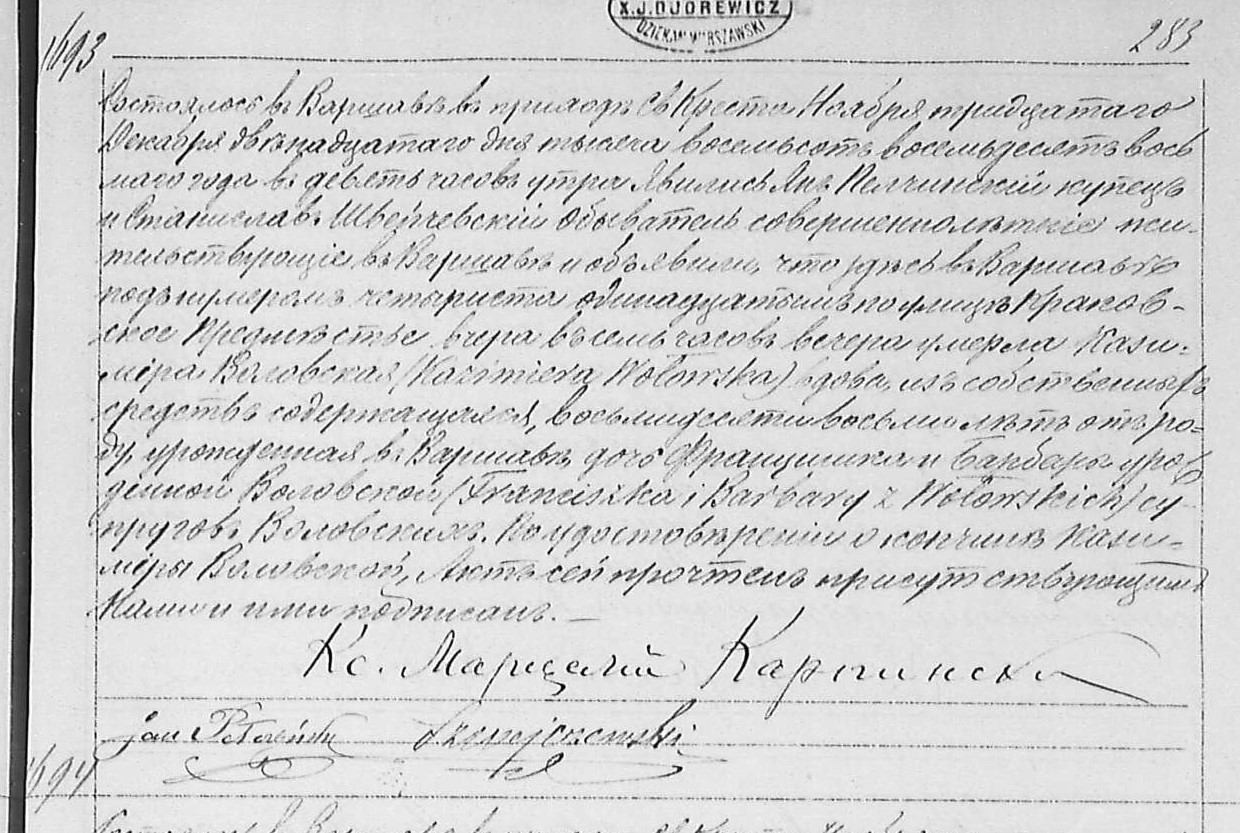 X.J.DUDREWICZ
DZIEKAN WARSZAWSKI
1693
283
Состоялось въ Варшавѣ въ приходѣ Св Креста Ноября тридцатаго
Декабря двѣнадцатаго дня тысяча восемьсотъ восемьдесятъ вось
маго года въ девять часовъ утра. Явились Янъ Пелчинскій купецъ
и Станиславъ Швейчевскій обыватель совершеннолѣтніе жи-
тельствующіе въ Варшавѣ и объявили, что здѣсь въ Варшавѣ
подъ нумеромъ четыриста одинадцатымъ по улицѣ Краков-
ское Предмѣстье вчера въ семь часовъ вечера умерла Кази-
міра Воловская (Kazimiera Wołowska) вдова, изъ собственныхъ
средствъ содержащаяся, восьмидесяти восьми лѣтъ отъ ро-
ду, урожденная въ Варшавѣ, дочь Францишка и Барбары урож
денной Воловской (Franciszka i Barbary z Wołowskich) су-
пруговъ Воловскихъ. По удостовѣреніи о кончинѣ Кази-
міры Воловской, Актъ сей прочтенъ присутствующимъ
Нами и ими подписанъ. —
Кс. Марцелій Карпински
Jan
1694